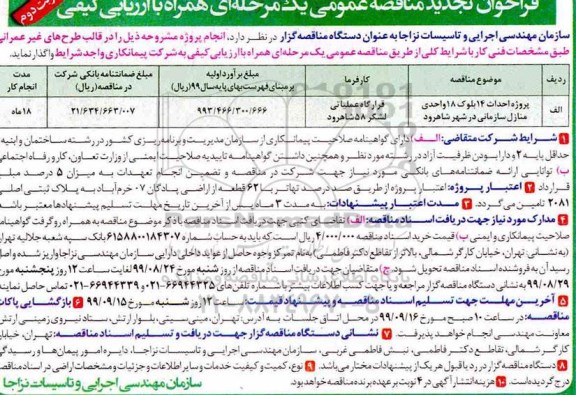 فراخوان تجدید مناقصه عمومی یک مرحله‌ای همراه با ارزیابی کیفی
نوبت دوم
سازمان مهندسی اجرایی و تاسیسات نزاجا به عنوان دستگاه مناقصه گزار در نظر دارد، انجام پروژه مشروحه ذیل را در قالب طرح‌های غیر عمرانی
طبق مشخصات فنی کار با شرایط کلی از طریق مناقصه عمومی یک مرحله‌ای همراه با ارزیابی کیفی به شرکت پیمانکاری واجد شرایط واگذار نماید.
ردیف موضوع مناقصه کارفرما مبلغ برآورد اولیه بر مبنای فهرست بهای پایه سال ۹۹ (ریال) مبلغ ضمانتنامه بانکی شرکت در مناقصه (ریال) مدت انجام کار
الف پروژه احداث ۱۴ بلوک ۱۸ واحدی منازل سازمانی در شهر شاهرود قرارگاه عملیاتی لشکر ۵۸ شاهرود ۹۹۳/۴۶۶/۳۰۰/۶۶۶ ۲۱/۶۳۴/۶۶۳/۰۰۷ ۱۸ ماه
۱ شرایط شرکت متقاضی: الف) دارای گواهینامه صلاحیت پیمانکاری از سازمان مدیریت و برنامه ریزی کشور در رشته ساختمان و ابنیه
حداقل پایه ۲ و دارا بودن ظرفیت آزاد در رشته مورد نظر و همچنین داشتن گواهینامه تایید صلاحیت ایمنی از وزارت تعاون، کار و رفاه اجتماعی
ب) توانایی ارائه ضمانتنامه‌های بانکی جهت شرکت در مناقصه و تضمین انجام تعهدات به میزان ۵ درصد مبلغ
قرارداد ۲ اعتبار پروژه: اعتبار پروژه از طریق صد درصد تهاتر با ۶۲ قطعه از اراضی پادگان ۰۷ خرم آباد به پلاک ثبتی اصلی
۲۰۸۱ تامین می‌گردد. ۳ مدت اعتبار پیشنهادات: به مدت ۳ ماه از آخرین تاریخ تسلیم پیشنهادها می‌باشد.
۴ مدارک مورد نیاز جهت دریافت اسناد مناقصه: الف) تقاضای کتبی جهت دریافت اسناد مناقصه با ذکر موضوع مناقصه به همراه رو گرفت گواهینامه
صلاحیت پیمانکاری و ایمنی ب) قیمت خرید اسناد مناقصه ۴/۰۰۰/۰۰۰ ریال است که باید به حساب شماره ۶۱۵۸۸۰۰۱۸۴۳۰۷ بانک سپه شعبه جلالیه تهران
(به نشانی: تهران، خیابان کارگر شمالی، بالاتر از تقاطع دکتر فاطمی) به نام تمرکز وجوه حاصل از عواید داخلی درآیی سازمان مهندسی نزاجا واریز شده و اصل
رسید آن به فروشنده اسناد مناقصه تحویل شود ج) متقاضیان جهت دریافت اسناد مناقصه از روز شنبه مورخ ۹۹/۰۸/۲۴ لغایت ساعت ۱۲ روز پنجشنبه مورخ
۹۹/۰۸/۲۹ به نشانی دستگاه مناقصه گزار مراجعه و یا جهت کسب اطلاعات بیشتر با شماره تلفن‌های ۶۶۹۴۴۳۲۵-۰۲۱ و ۶۶۹۴۴۳۳۹-۰۲۱ تماس حاصل نمایند
۵ آخرین مهلت جهت تسلیم اسناد مناقصه و پیشنهاد قیمت: تا ساعت ۱۲ روز شنبه مورخ ۹۹/۰۹/۱۵ ۶ بازگشایی پاکات
مناقصه: در ساعت ۱۰ صبح مورخ ۹۹/۰۹/۱۶ در محل اتاق جلسات به آدرس تهران، مینی سیتی، بلوار ارتش، ستاد نیروی زمینی ارتش
معاونت مهندسی انجام خواهد پذیرفت. ۷ نشانی دستگاه مناقصه گزار جهت دریافت و تسلیم اسناد مناقصه: تهران، خیابان
کارگر شمالی، تقاطع دکتر فاطمی، نبش فاطمی غربی، سازمان مهندسی اجرایی و تاسیسات نزاجا، دایره امور پیمان‌ها و رسیدگی
۸ دستگاه مناقصه گزار در رد یا قبول هر یک از پیشنهادات مختار می‌باشد. ۹ نوع، کمیت و کیفیت خدمات و سایر اطلاعات و جزئیات و مشخصات اراضی در اسناد مناقصه
درج گردیده است. ۱۰ هزینه انتشار آگهی در ۴ نوبت بر عهده برنده مناقصه خواهد بود.
سازمان مهندسی اجرایی و تاسیسات نزاجا